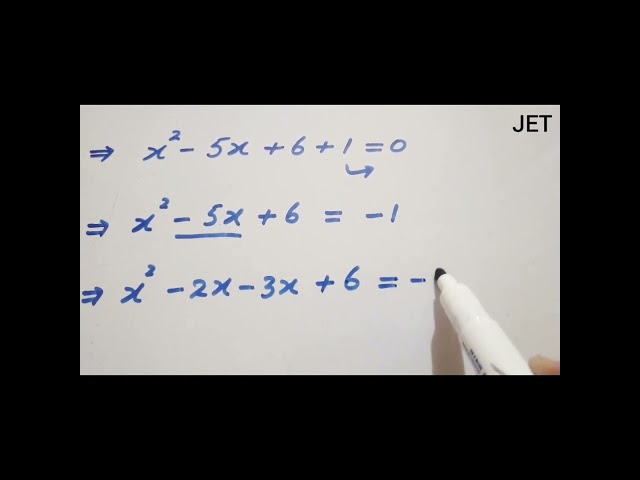 JET
⇒ x² - 5x + 6 + 1 = 0
⇒ x² - 5x + 6 = -1
⇒ x² - 2x - 3x + 6 = -